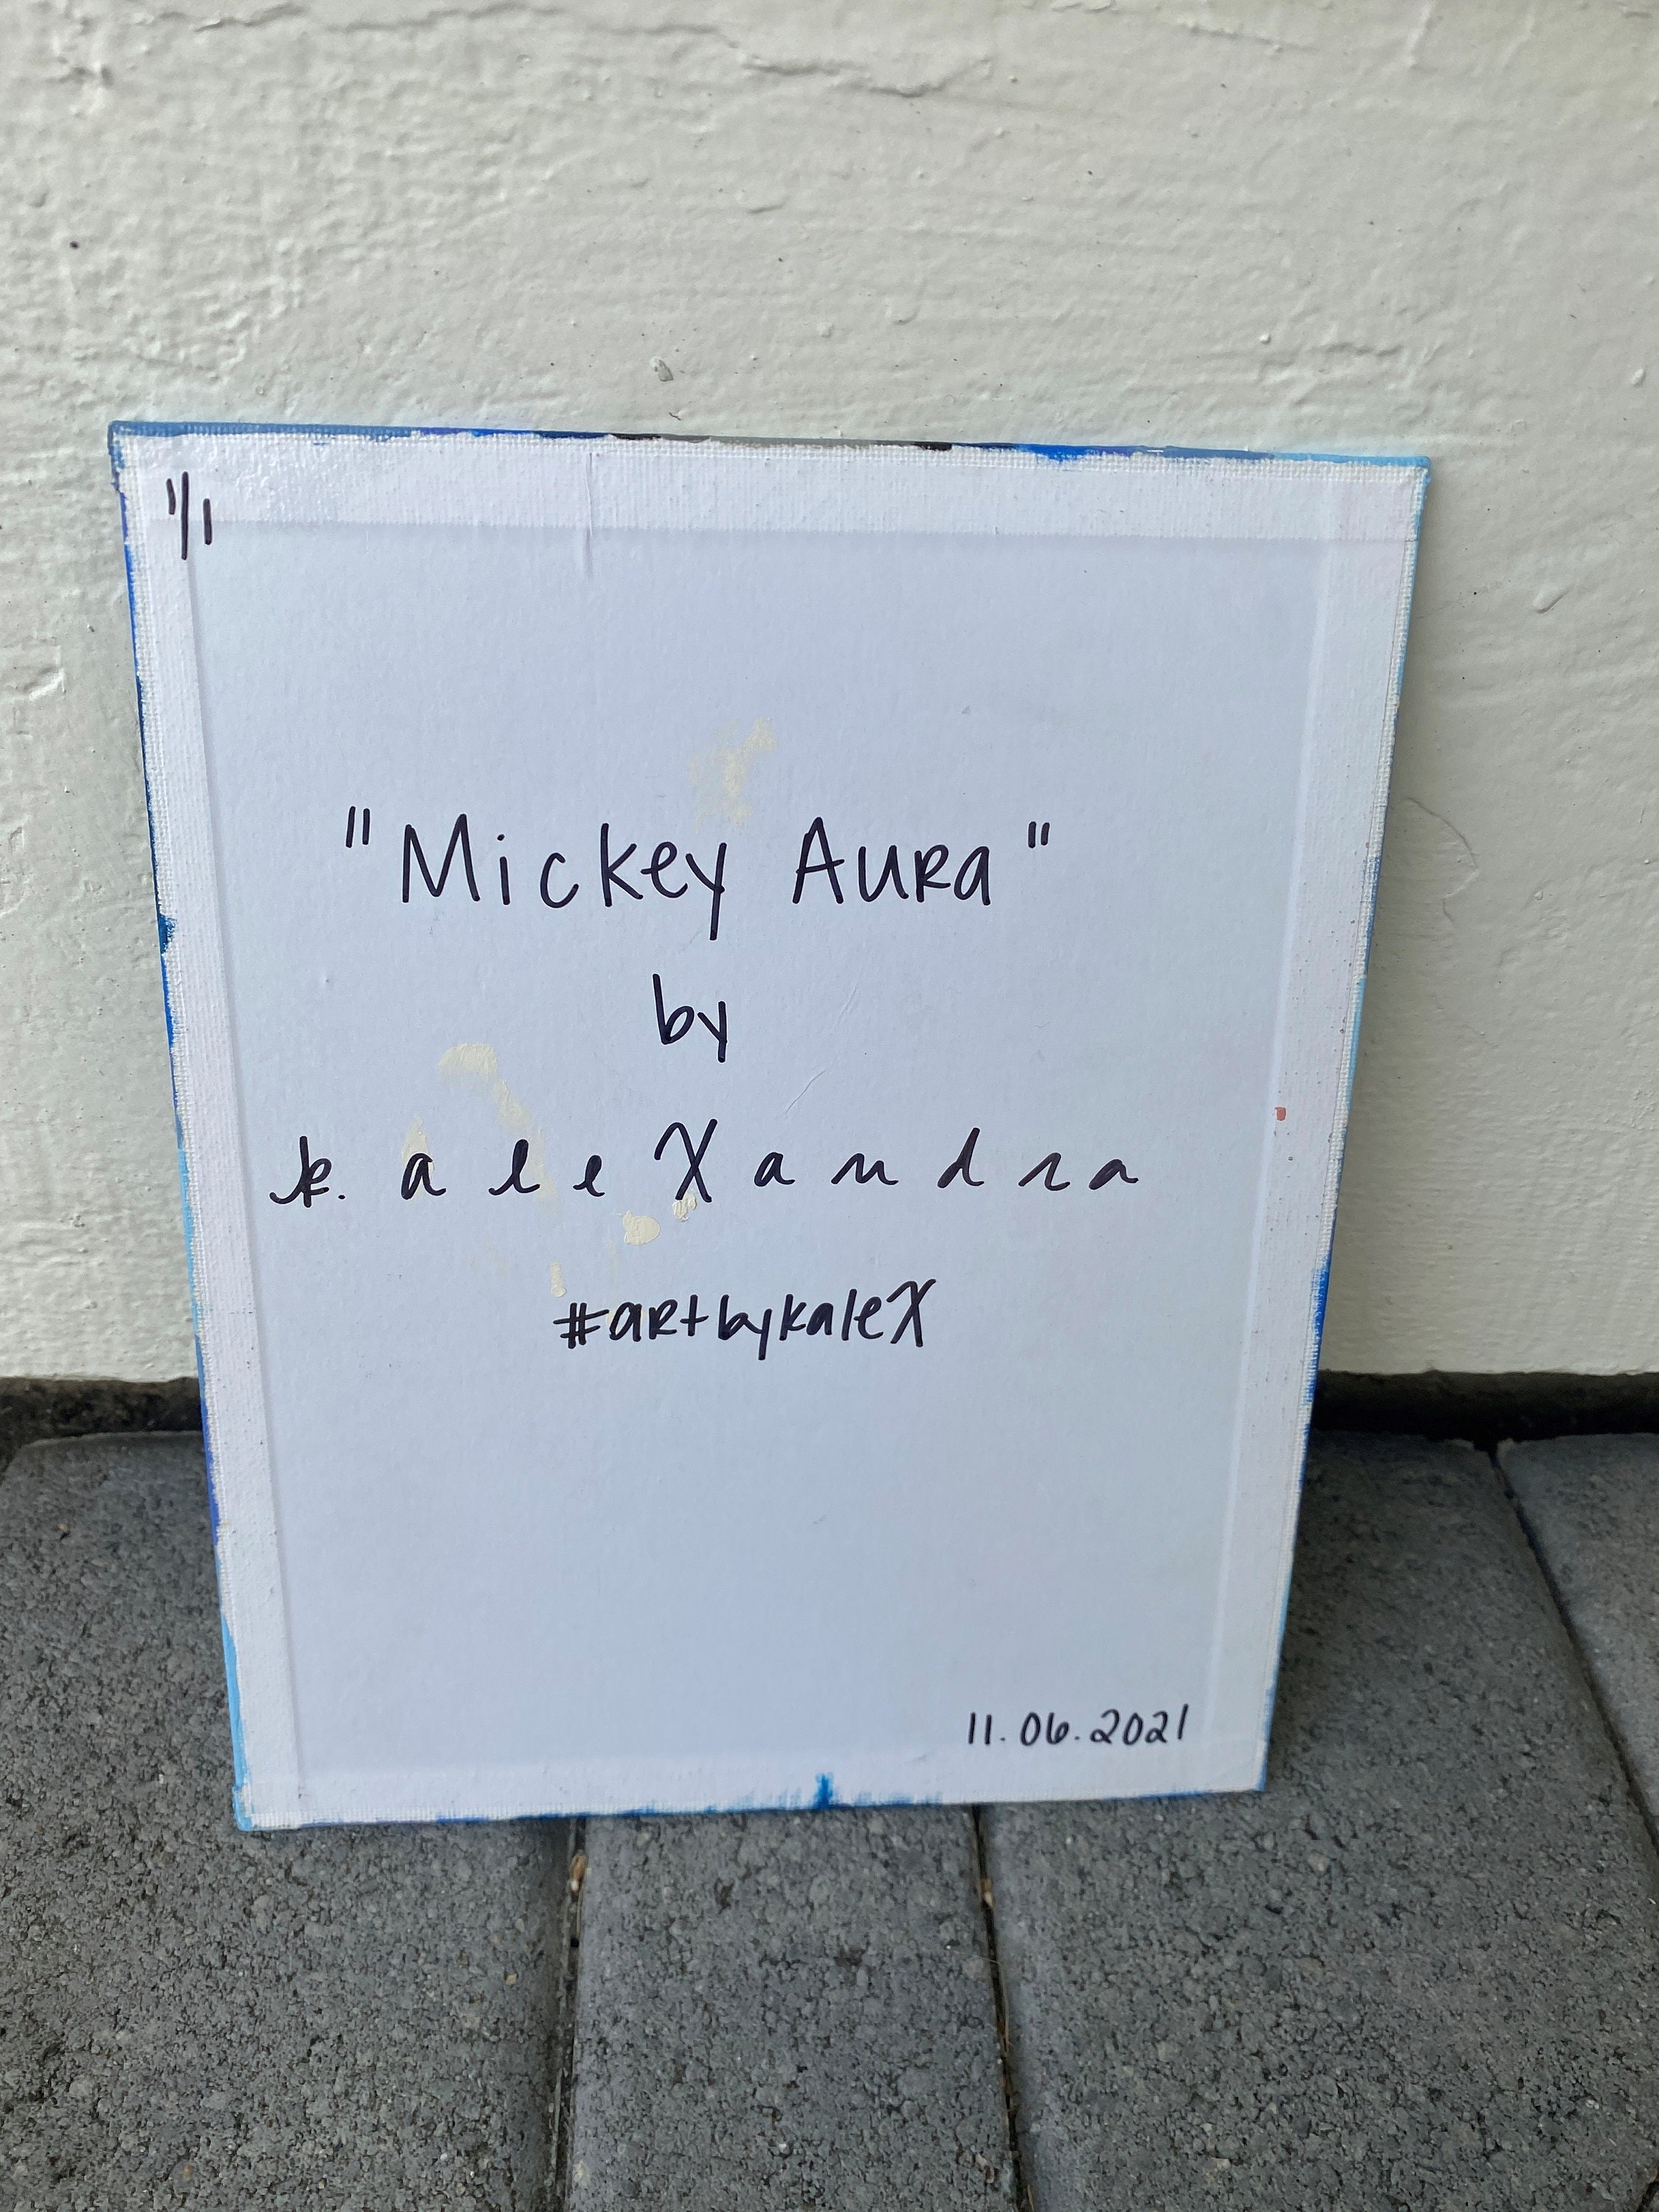 1/1
"Mickey Aura"
by
k. aleXandra
#artbykaleX
11.06.2021